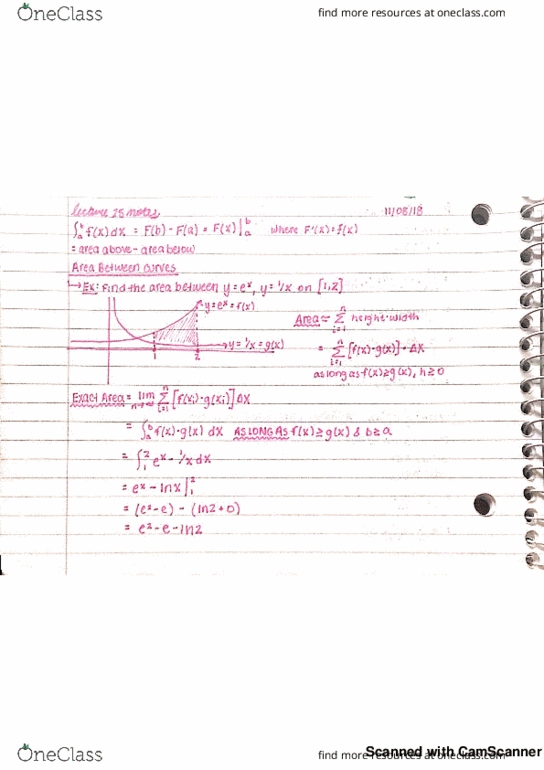 OneClass
find more resources at oneclass.com
lecture 25 notes 11/08/18
∫ₐᵇ f(x)dx = F(b) - F(a) = F(x)|ₐᵇ where F'(x)=f(x)
= area above - area below
Area Between curves
↳ Ex: Find the area between y=eˣ, y=1/x on [1,2]
y=eˣ=f(x)
y=1/x=g(x)
1 2
Area ≈ Σᵢ₌₁ⁿ height·width
= Σᵢ₌₁ⁿ [f(x)-g(x)]·Δx
as long as f(x)≥g(x), h≥0
Exact Area = lim n→∞ Σᵢ₌₁ⁿ [f(xᵢ)-g(xᵢ)]Δx
= ∫ₐᵇ f(x)-g(x) dx AS LONG AS f(x)≥g(x) & b≥a
= ∫₁² eˣ - 1/x dx
= eˣ - lnx|₁²
= (e²-e) - (ln2+0)
= e²-e-ln2
OneClass
find more resources at oneclass.com
Scanned with CamScanner